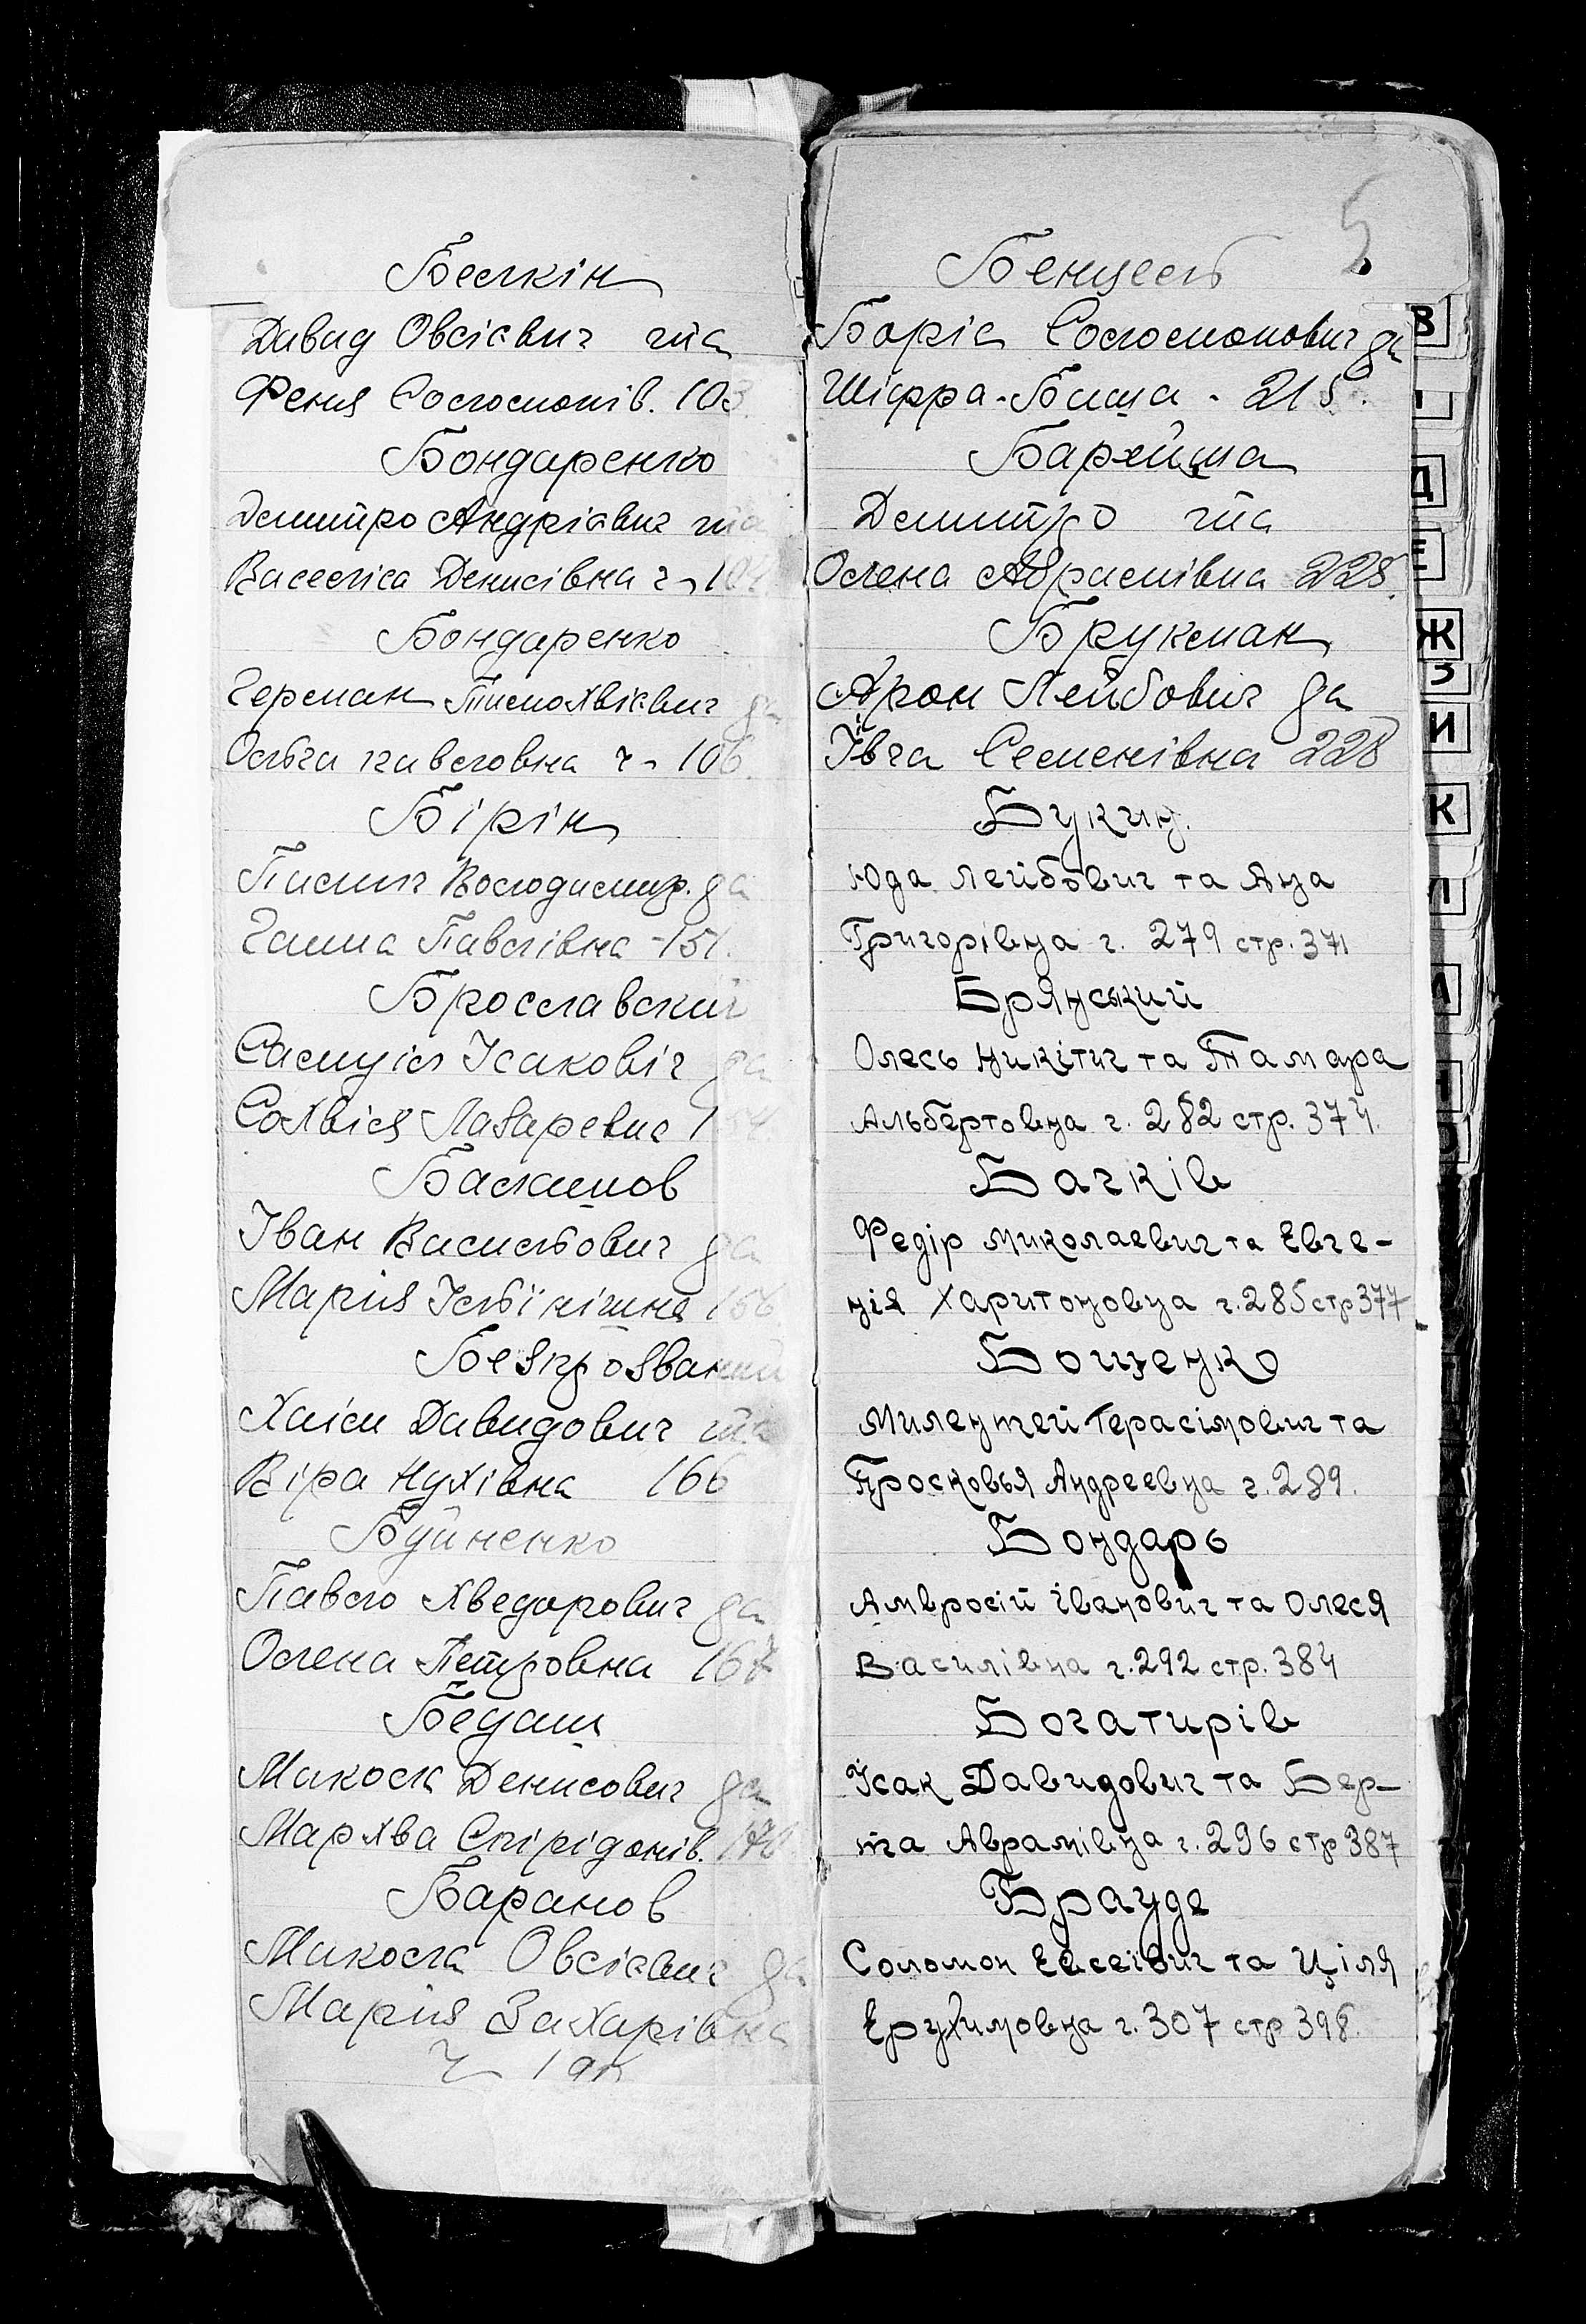 Белкін
Давид Овсієвич та
Феня Соломонів. 103
Бондаренко
Дмитро Андрієвич та
Василіса Денисівна ч
Бондаренко
Герман Тимохвієвич да
Ольга павловна ч 106.
Бірін
Пилип Володимир. да
Ганна Павлівна - 151.
Брославский
Самуіл Ісаковіч да
Сохвія Лазаревна
Балашов
Іван Васильович да
Марія 156
Безпрозваний
Хаім Давидович та
Віра Нухівна 166
Буйненко
Павло Хведорович да
Олена Петровна 167
Бедаш
Микола Денисович да
Мархва Спірідонів.
Баранов
Микола Овсієвич да
Марія Захарівна
ч
5
Бенцель
Боріс Соломонович да
Шіфра-Бища - 215.
Дмитро та
Олена Абрамівна 228.
Брукман
Арон Лейбович да
Ївга Семенівна 228
Букин.
Юда Лейбович та Ана
Григорівна г. 279 стр. 371
Брянський
Олесь Никітич та Тамара
Альбертовна г. 282 стр. 374.
Бачків
Федір Миколаевич та Евге-
нія Харитоновна г. 285 стр 377
Боценко
Милентей Герасімович та
Просковья Андреевна г. 289.
Бондарь
Амвросій Іванович та Олеся
Василівна г. 292 стр. 384
Богатирів
Ісак Давидович та Бер-
та Аврамівна г. 296 стр 387
Брауде
Соломон Евсеївич та Циля
Ерухимовна г. 307 стр 398.
В
Д
Е
Ж
З
И
К
Л